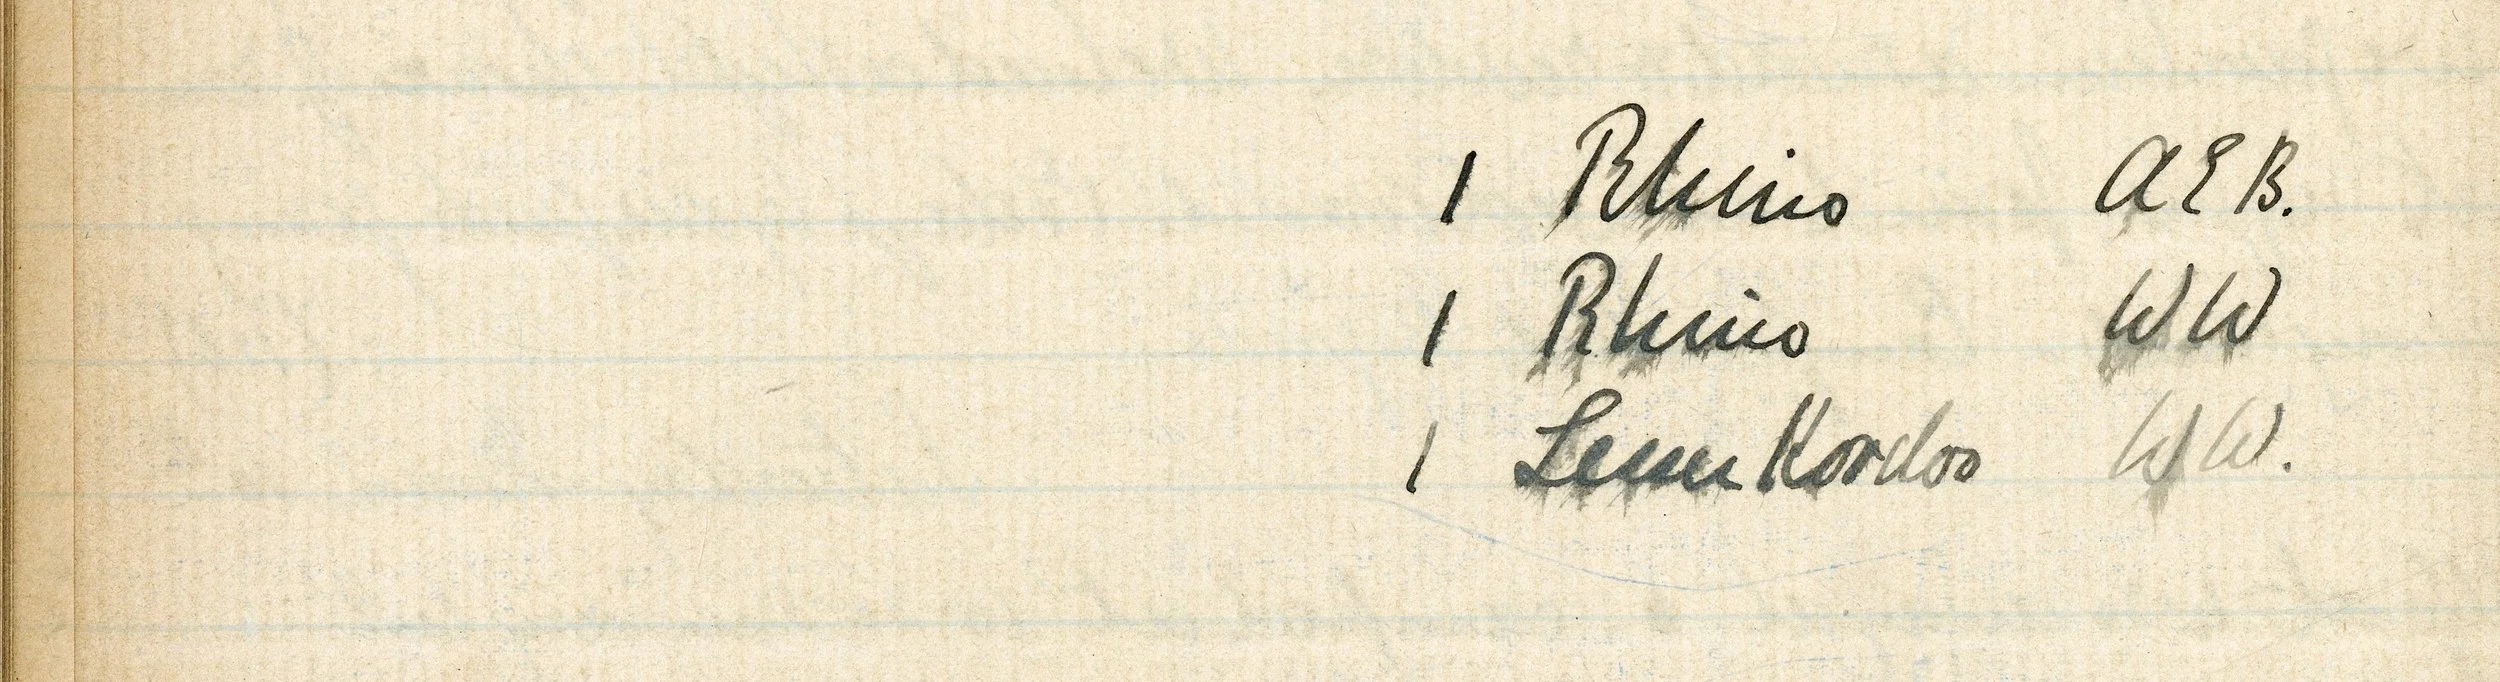 1 Rhino A E B.
1 Rhino W W
1 Lesser Koodoo W W.